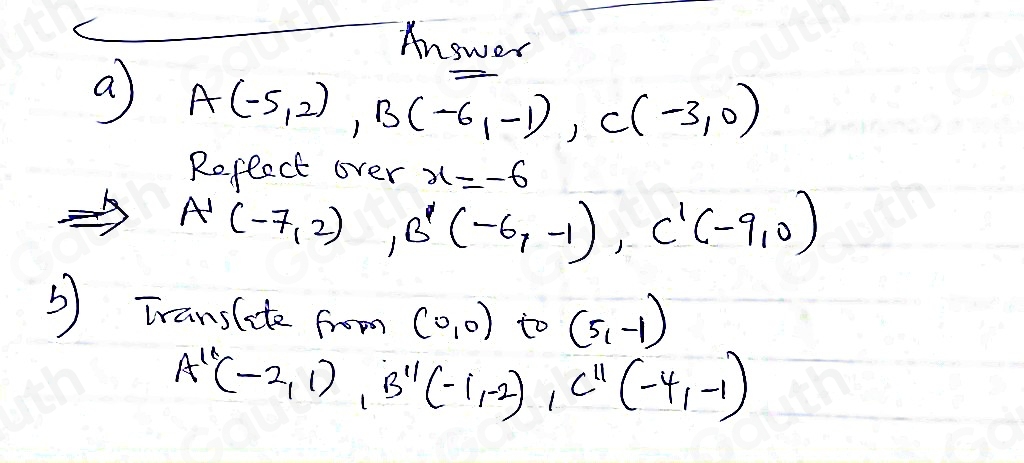 Answer
a) A(-5,2), B(-6,-1), C(-3,0)
Reflect over x=-6
⇒ A'(-7,2), B'(-6,-1), C'(-9,0)
b) Translate from (0,0) to (5,-1)
A''(-2,1), B''(-1,-2), C''(-4,-1)